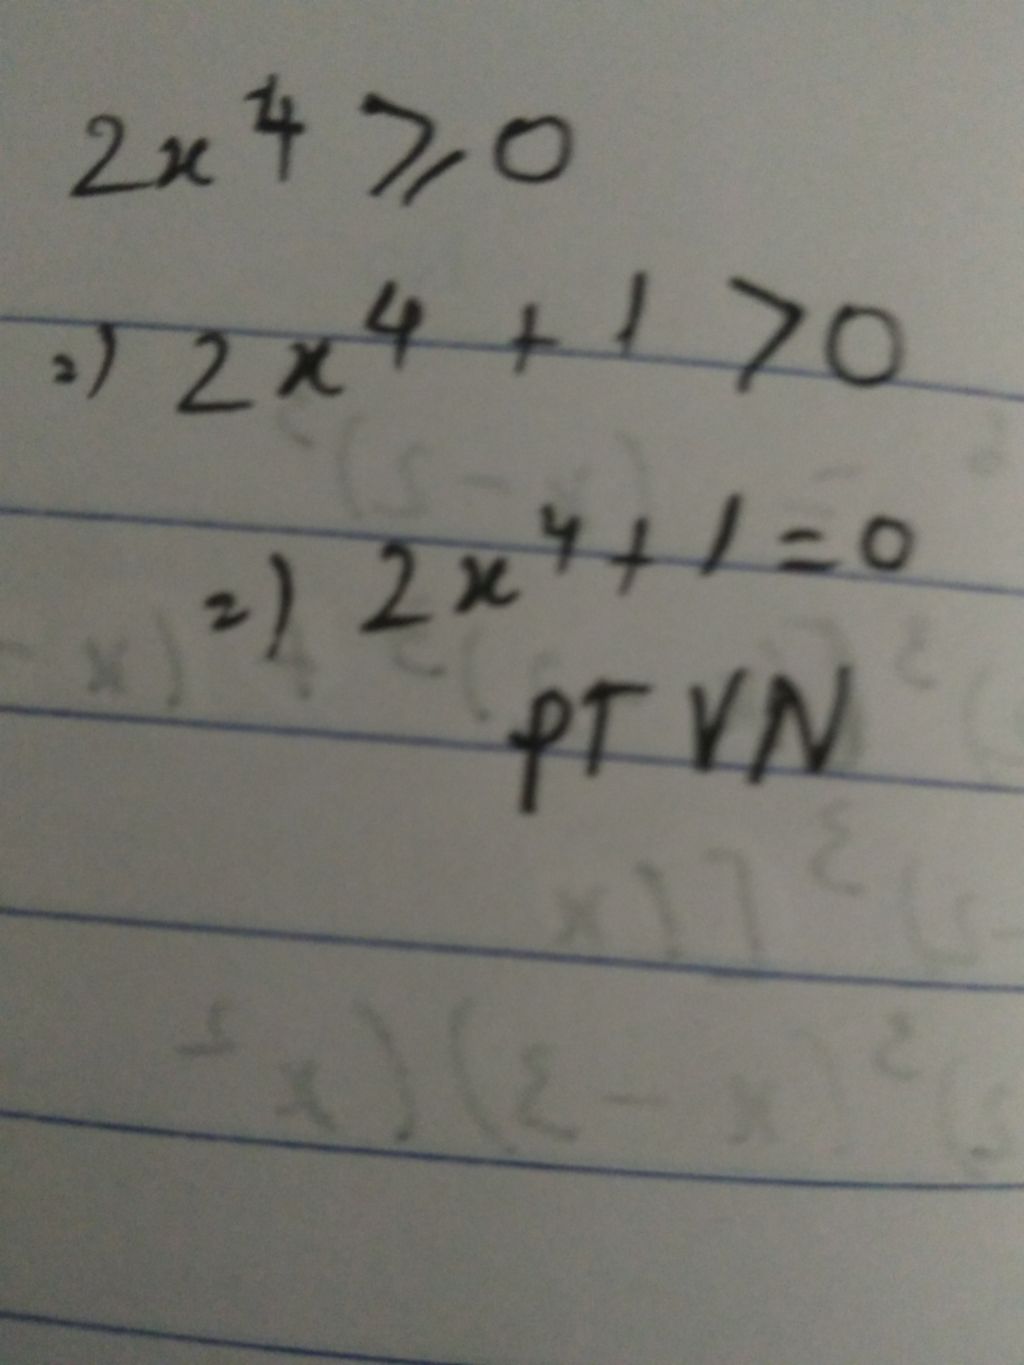 2x⁴ ⩾ 0
=) 2x⁴ + 1 > 0
=) 2x⁴ + 1 = 0
PT VN